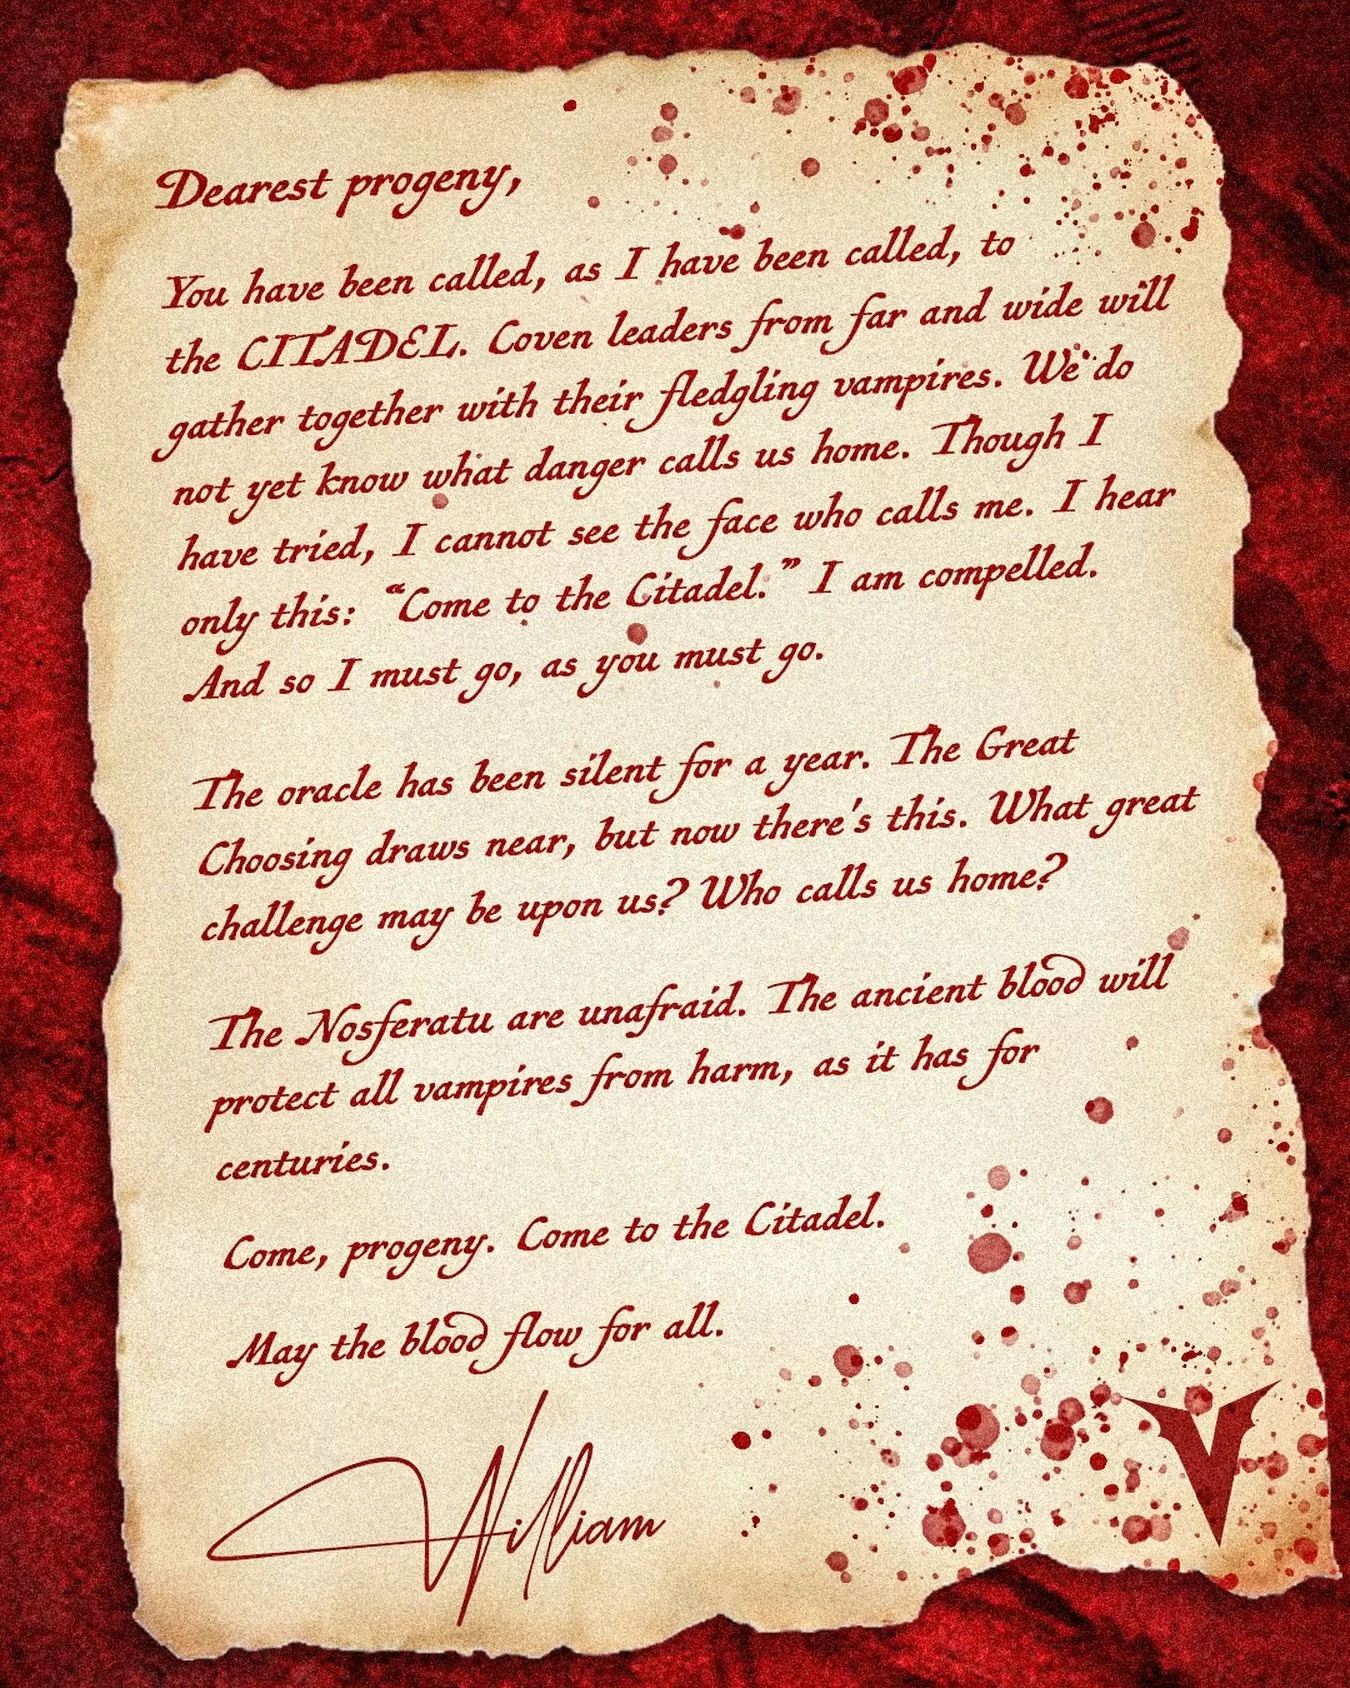 Dearest progeny,
You have been called, as I have been called, to
the CITADEL. Coven leaders from far and wide will
gather together with their fledgling vampires. We do
not yet know what danger calls us home. Though I
have tried, I cannot see the face who calls me. I hear
only this: “Come to the Citadel.” I am compelled.
And so I must go, as you must go.
The oracle has been silent for a year. The Great
Choosing draws near, but now there's this. What great
challenge may be upon us? Who calls us home?
The Nosferatu are unafraid. The ancient blood will
protect all vampires from harm, as it has for
centuries.
Come, progeny. Come to the Citadel.
May the blood flow for all.
William
V